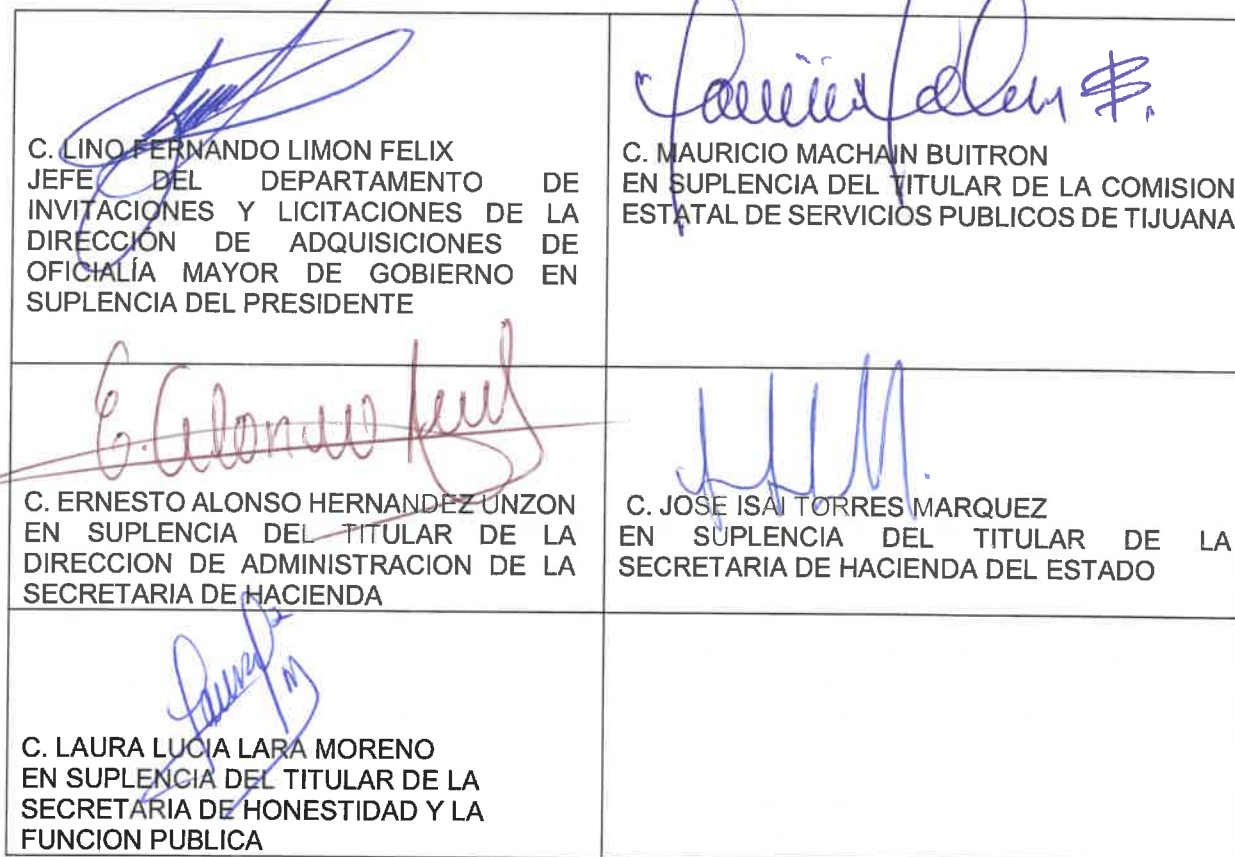 C. LINO FERNANDO LIMON FELIX
JEFE DEL DEPARTAMENTO DE
INVITACIONES Y LICITACIONES DE LA
DIRECCIÓN DE ADQUISICIONES DE
OFICIALÍA MAYOR DE GOBIERNO EN
SUPLENCIA DEL PRESIDENTE
C. MAURICIO MACHAIN BUITRON
EN SUPLENCIA DEL TITULAR DE LA COMISION
ESTATAL DE SERVICIOS PUBLICOS DE TIJUANA
E. Alonso
C. ERNESTO ALONSO HERNANDEZ UNZON
EN SUPLENCIA DEL TITULAR DE LA
DIRECCION DE ADMINISTRACION DE LA
SECRETARIA DE HACIENDA
C. JOSE ISAI TORRES MARQUEZ
EN SUPLENCIA DEL TITULAR DE LA
SECRETARIA DE HACIENDA DEL ESTADO
C. LAURA LUCIA LARA MORENO
EN SUPLENCIA DEL TITULAR DE LA
SECRETARIA DE HONESTIDAD Y LA
FUNCION PUBLICA